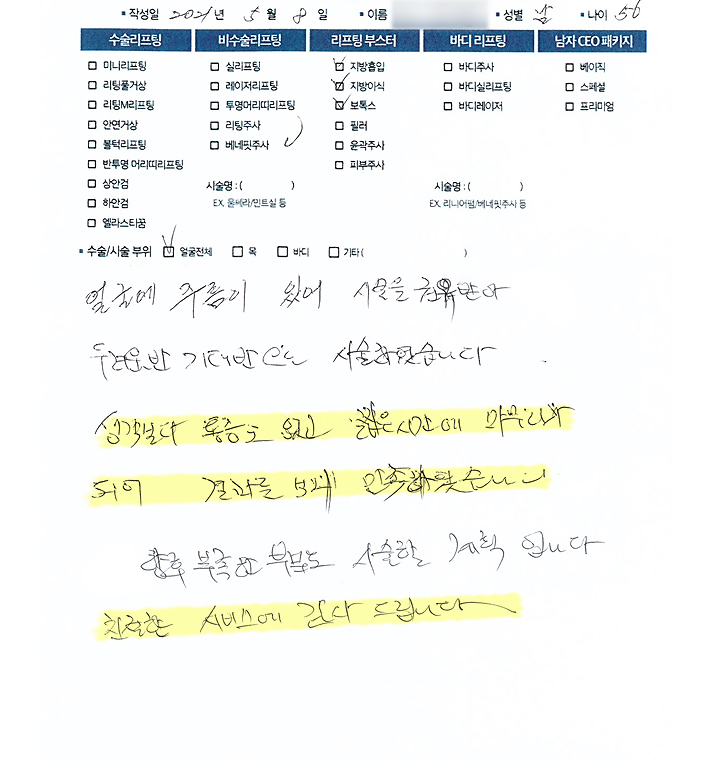 ▪ 작성일 2021년 5월 8일 ▪ 이름 ▪ 성별 남 ▪ 나이 56
수술리프팅 비수술리프팅 리프팅 부스터 바디 리프팅 남자 CEO 패키지
미니리프팅 실리프팅 지방흡입 바디주사 베이직
리팅풀거상 레이저리프팅 지방이식 바디실리프팅 스페셜
리팅M리프팅 투명머리띠리프팅 보톡스 바디레이저 프리미엄
안면거상 리팅주사 필러
볼턱리프팅 베네핏주사 윤곽주사
반투명 머리띠리프팅 피부주사
상안검 시술명 : ( ) 시술명 : ( )
하안검 EX. 울쎄라/민트실 등 EX. 리니어펌/베네핏주사 등
엘라스티꿈
▪ 수술/시술 부위 얼굴전체 목 바디 기타 ( )
얼굴에 주름이 있어 시술을 권유받아
두려움반 기대반으로 시술하였습니다
생각보다 통증도 없고 짧은시간에 마무리가
되어 결과를 보며 만족하였습니다
향후 부족한 부분도 시술할 계획 입니다
친절한 서비스에 감사 드립니다